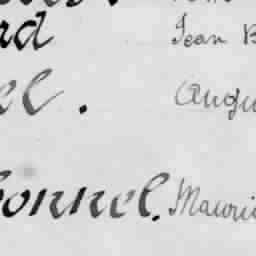 rd Jean B
el. Augu
bonnel. Mauri